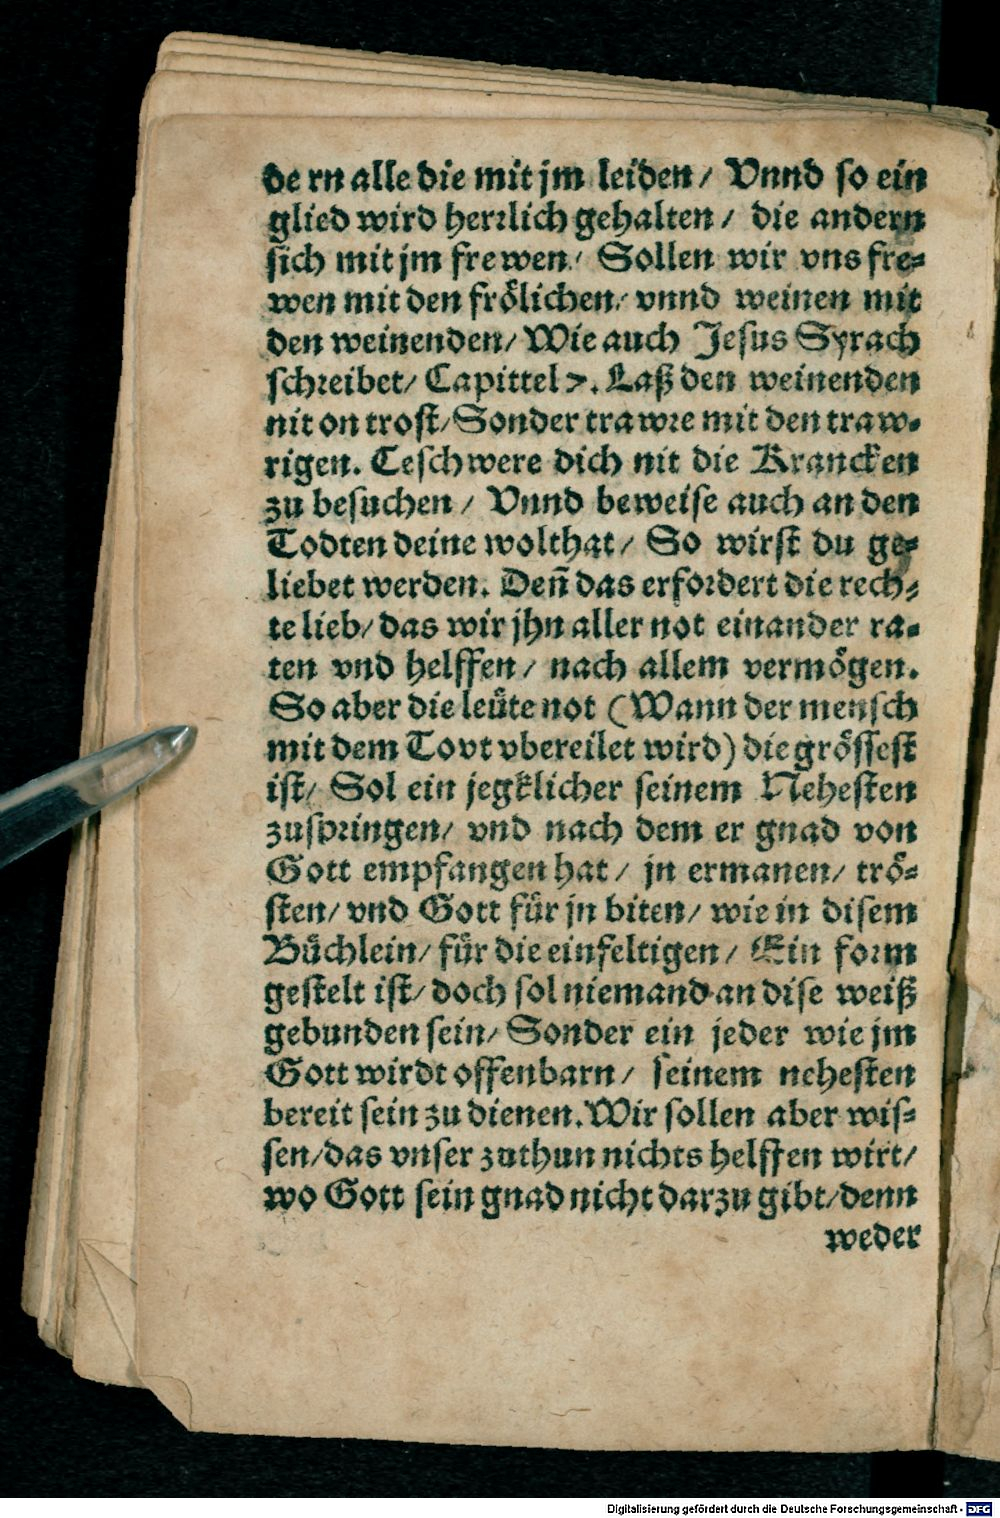 dern alle die mit jm leiden/ Vnnd so ein
glied wird herrlich gehalten/ die andern
sich mit jm frewen/ Sollen wir vns fre-
wen mit den frölichen/ vnnd weinen mit
den weinenden/ Wie auch Jesus Syrach
schreibet/ Capittel 7. Laß den weinenden
nit on trost/ Sonder trawre mit den traw-
rigen. Ceschwere dich nit die Krancken
zu besuchen/ Vnnd beweise auch an den
Todten deine wolthat/ So wirst du ge-
liebet werden. Deñ das erfordert die rech-
te lieb/ das wir jhn aller not einander ra-
ten vnd helffen/ nach allem vermögen.
So aber die leüte not (Wann der mensch
mit dem Tovt vbereilet wird) die grössest
ist/ Sol ein jegklicher seinem Nehesten
zuspringen/ vnd nach dem er gnad von
Gott empfangen hat/ jn ermanen/ trö-
sten/ vnd Gott für jn biten/ wie in disem
Büchlein/ für die einfeltigen/ Ein form
gestelt ist/ doch sol niemand an dise weiß
gebunden sein/ Sonder ein jeder wie jm
Gott wirdt offenbarn/ seinem nehesten
bereit sein zu dienen. Wir sollen aber wis-
sen/ das vnser zuthun nichts helffen wirt/
wo Gott sein gnad nicht darzu gibt/ denn
weder
Digitalisierung gefördert durch die Deutsche Forschungsgemeinschaft - DFG